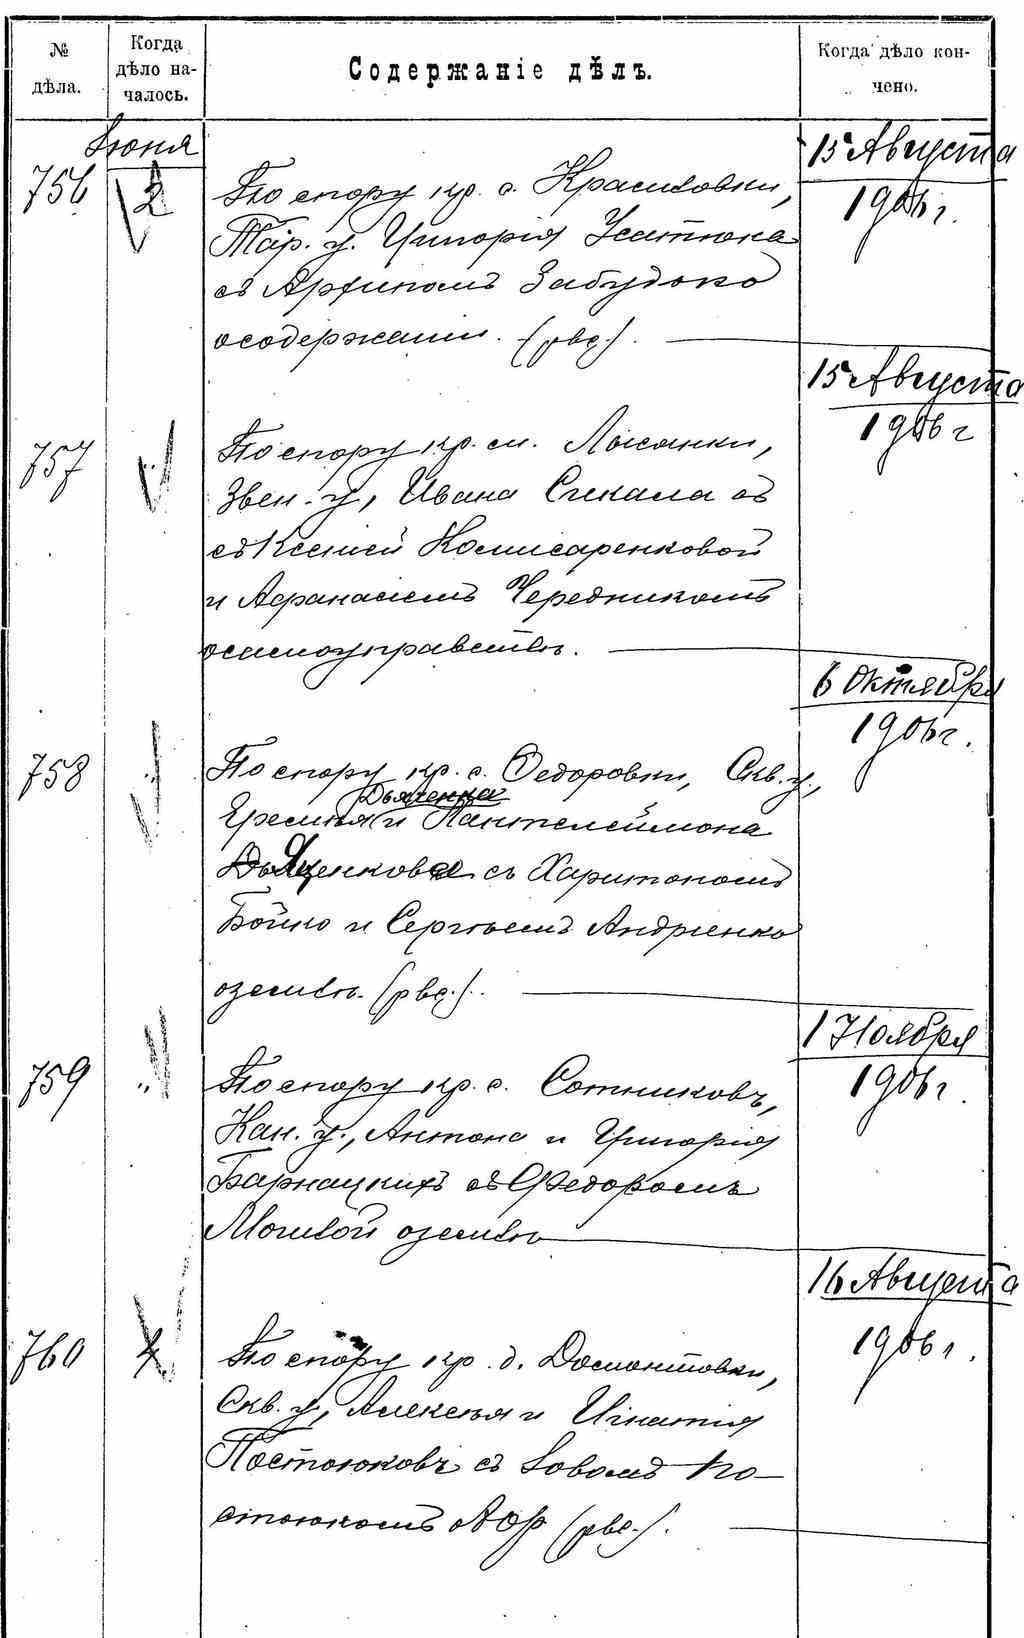 № дѣла.
Когда дѣло началось.
Содержаніе дѣлъ.
Когда дѣло кончено.
Іюня
15 Августа
1906 г.
756
2
По спору кр. с. Красиловки,
Тар. у. Григорія Усатюка
съ Архипомъ Забудько
о содержаніи. (рвц.).
15 Августа
1906 г
757
По спору кр. м. Лысянки,
Звен. у., Ивана Сикала съ
съ Ксеніей Комисаренковой
и Афанасіемъ Чередникомъ
о самоуправствѣ.
6 Октября
1906 г.
758
По спору кр. с. Федоровки, Скв. у.,
Дьяченка
Еремія и Пантелеймона
Дьяченковыхъ съ Харитономъ
Бойко и Сергѣемъ Андріенко
о землѣ. (рвц.).
1 Ноября
1906 г.
759
По спору кр. с. Сотниковъ,
Кан. у., Антона и Григорія
Барнацкихъ съ Федоромъ
о землѣ
16 Августа
1906 г.
760
4
По спору кр. д. Домонтовки,
Скв. у., Алексѣя и Игнатія
Постоюковъ съ Іовомъ По-
стоюкомъ (рвц.).